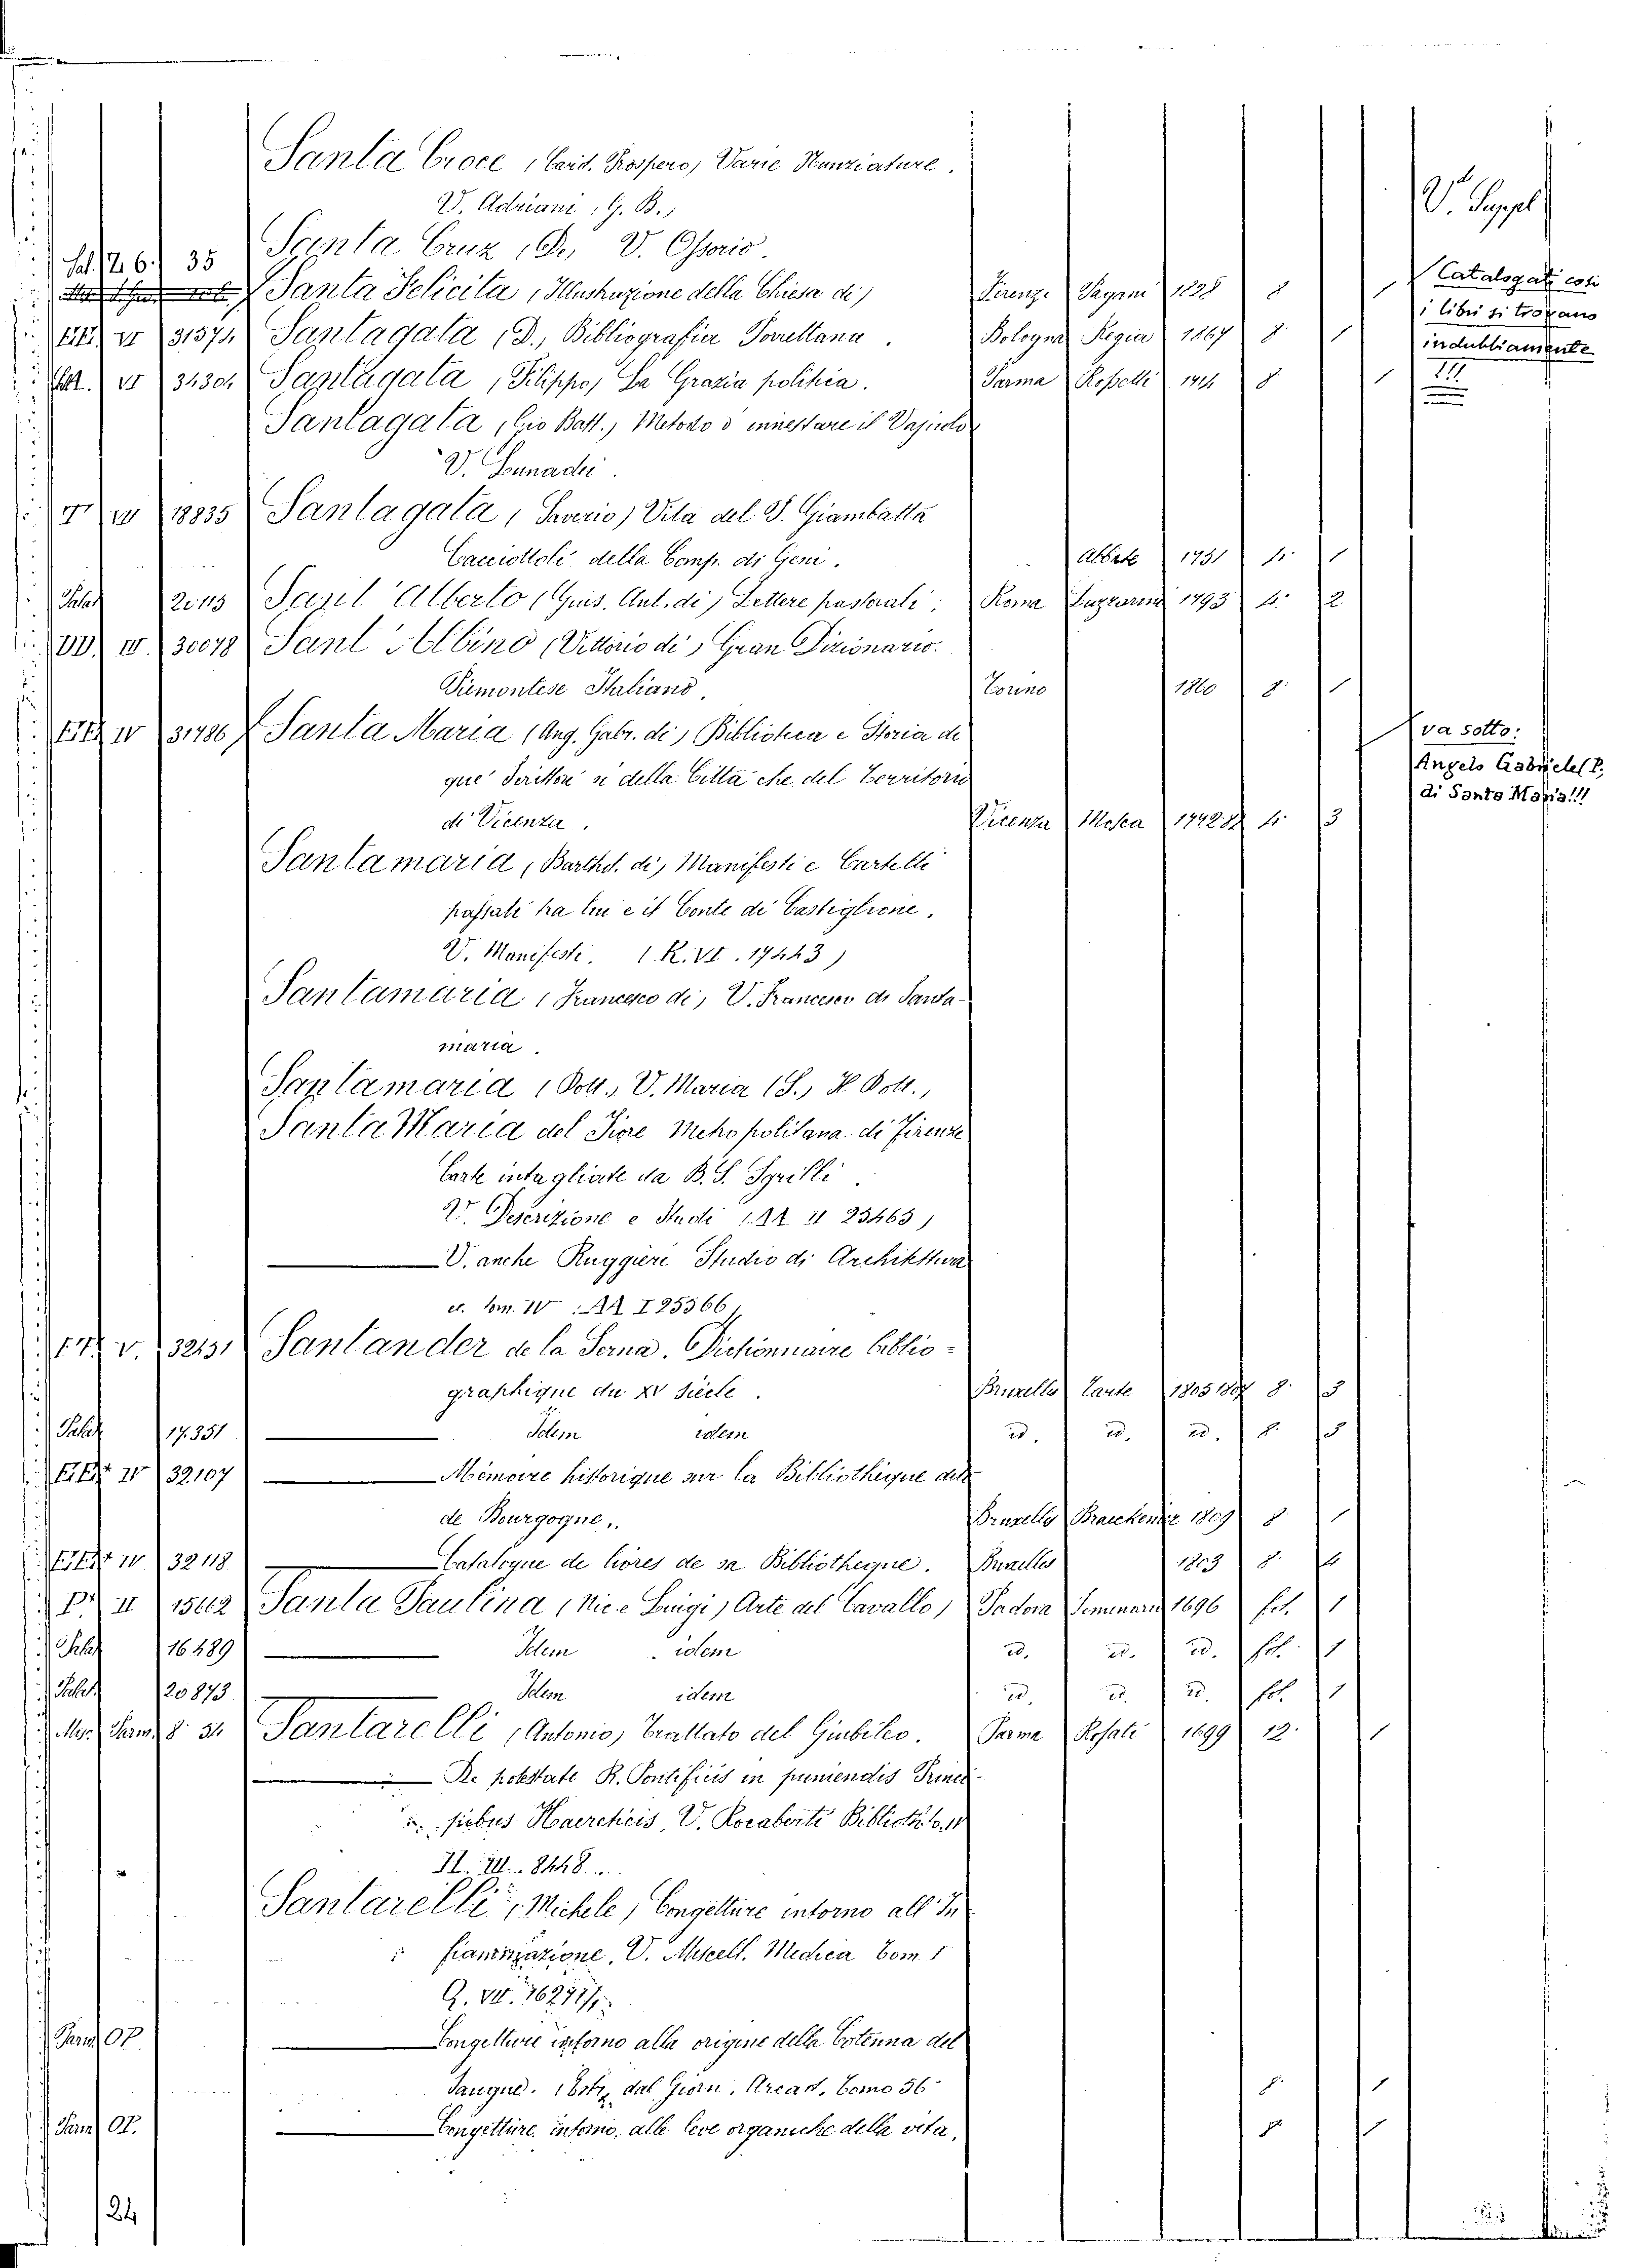 Santa Croce (Card. Prospero) Varie Nunziature.
V. Adriani (G. B.)
V. Suppl
Santa Cruz (De) V. Ossorio.
Sal. 26. 35
Santa Felicita (Illustrazione della Chiesa di) Firenze Pagani 1828 8
Catalogati così
i libri si trovano
indubbiamente
!!!
VI 31574 Santagata (D.) Bibliografia Porrettana. Bologna Regia 1867 8. 1
VI 3430 Santagata (Filippo) La Grazia politica. Parma Rosselli 8 1
Santagata (Gio Batt.) Metodo d'innestare il Vajuolo
V. Bunadei.
18835 Santagata (Saverio) Vita del S. Giambatta
Cacciottoli della Comp. di Gesù. Abbate 1751 4. 1
Palat 12113 Sant'Alberto (Gius. Ant. di) Lettere pastorali. Roma Lazzarini 1793 4. 2
DD. III. 30078 Sant'Albino (Vittorio di) Gran Dizionario.
Piemontese Italiano. Torino 1860 8. 1
IV 31786 Santa Maria (Ang. Gabr. di) Biblioteca e Storia di
que' Scrittori sì della Città che del Territorio
di Vicenza. Vicenza Mosca 4. 3
va sotto:
Angelo Gabriele (P.
di Santa Maria!!!
Santamaria (Barthol. di) Manifesti e Cartelli
passati tra lui e il Conte di Castiglione.
V. Manifesti. (R. VI. 17443)
Santamaria (Francesco di) V. Francesco di Santa-
maria.
Santamaria (Dott.) V. Maria (S.) H Dott.,
Santa Maria del Fiore Metropolitana di Firenze
Carte intagliate da B. S. Sgrilli.
V. Descrizione e Studi (AA II 25463)
V. anche Ruggieri Studio di Architettura
et. tom. IV. AA I 25566.
V. 32131 Santander de la Serna. Dictionnaire biblio-
graphique du XV siècle. Bruxelles Tarte 1805 1807 8. 3
Palat 17.351 Idem idem id. id. id. 8. 3
IV 32107 Mémoire historique sur la Bibliothèque dite
de Bourgogne. Bruxelles Braeckenier 1809 8. 1
IV 32118 Catalogue de livres de sa Bibliotheque. Bruxelles 1803 8. 4
P. II 15612 Santa Paulina (Nic.e Luigi) Arte del Cavallo, Padova Seminario 1696 fol. 1
Palat 16489 Idem idem id. id. id. fol. 1
Palat. 20873 Idem idem id. id. id. fol. 1
Santarelli (Antonio) Trattato del Giubileo. Parma Rosati 1699 12. 1
De potestate R. Pontificis in puniendis Princi-
pibus Haereticis, V. Rocaberti Biblioth. to. II
II. III. 8448.
Santarelli (Michele) Congetture intorno all'In
fiammazione. V. Miscell. Medica Tom. I
G. VII. 16271/1.
Parm OP. Congetture intorno alla origine della Cotenna del
Sangue. (Estr. dal Giorn. Arcad. Tomo 56 8. 1
Parm OP. Congetture intorno alle leve organiche della vita. 8 1
24